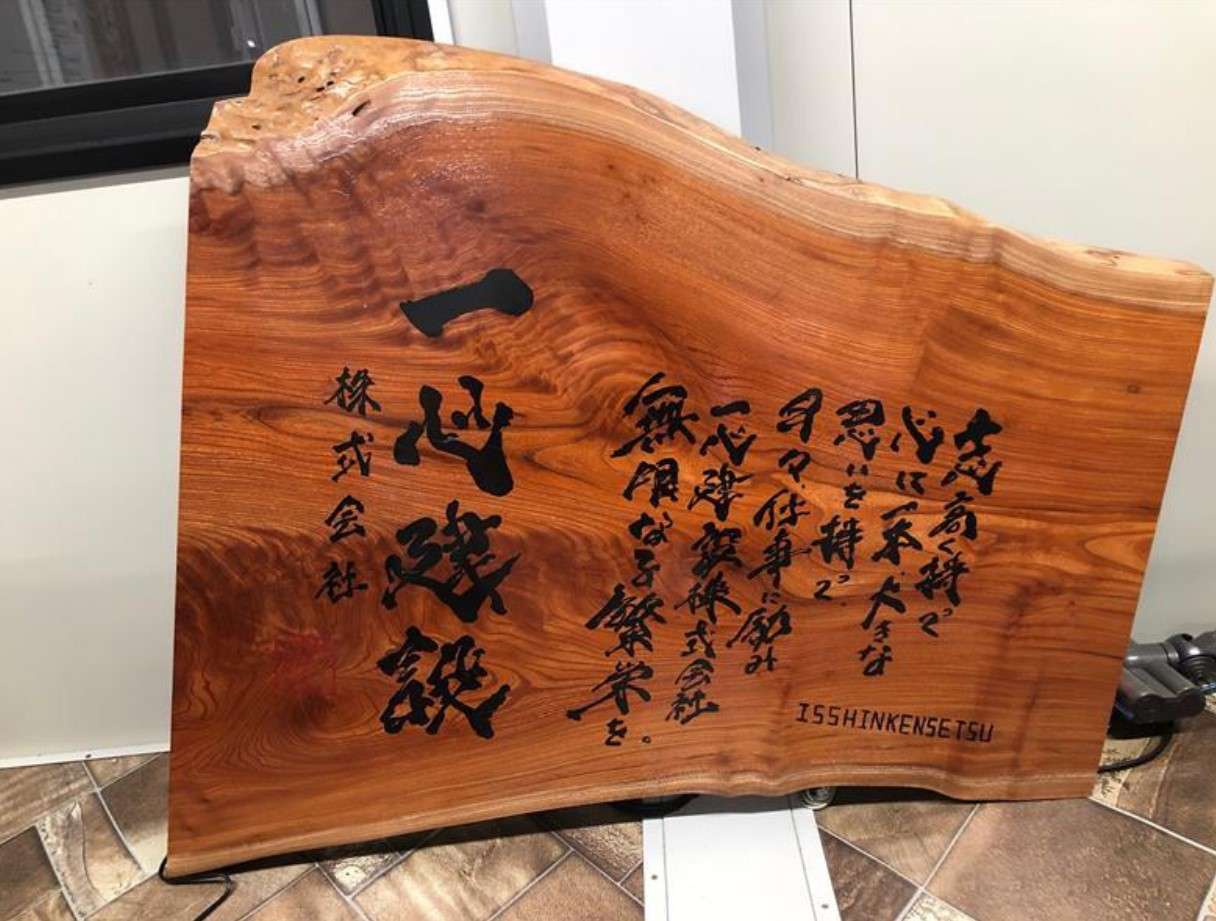 志高く持って
心に一本大きな
思いを持って
日々仕事に励み
一心建設株式会社
無限なる繁栄を。
一心建設
株式会社
ISSHINKENSETSU